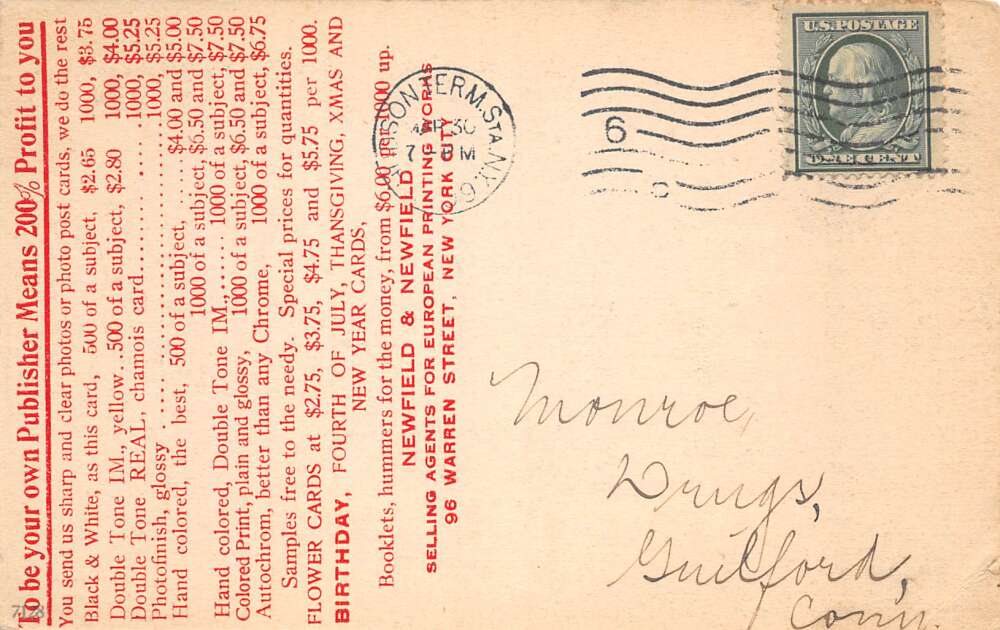 To be your own Publisher Means 200% Profit to you
You send us sharp and clear photos or photo post cards, we do the rest
Black & White, as this card, 500 of a subject, $2.65 1000, $3.75
Double Tone IM., yellow..500 of a subject, $2.80 1000, $4.00
Double Tone REAL, chamois card............ 1000, $5.25
Photofinish, glossy ..... ...................1000, $5.25
Hand colored, the best, 500 of a subject, .....$4.00 and $5.00
1000 of a subject, $6.50 and $7.50
Hand colored, Double Tone IM.,...... 1000 of a subject, $7.50
Colored Print, plain and glossy, 1000 of a subject, $6.50 and $7.50
Autochrom, better than any Chrome, 1000 of a subject, $6.75
Samples free to the needy. Special prices for quantities.
FLOWER CARDS at $2.75, $3.75, $4.75 and $5.75 per 1000.
BIRTHDAY, FOURTH OF JULY, THANSGIVING, XMAS AND
NEW YEAR CARDS,
Booklets, hummers for the money, from $6.00 per 1000 up.
NEWFIELD & NEWFIELD
SELLING AGENTS FOR EUROPEAN PRINTING WORKS
96 WARREN STREET, NEW YORK CITY
TERM. STA. N.Y.
30
7 PM
6
C
U.S. POSTAGE
ONE CENT
Monroe,
Drugs,
Guilford,
Conn.
7128